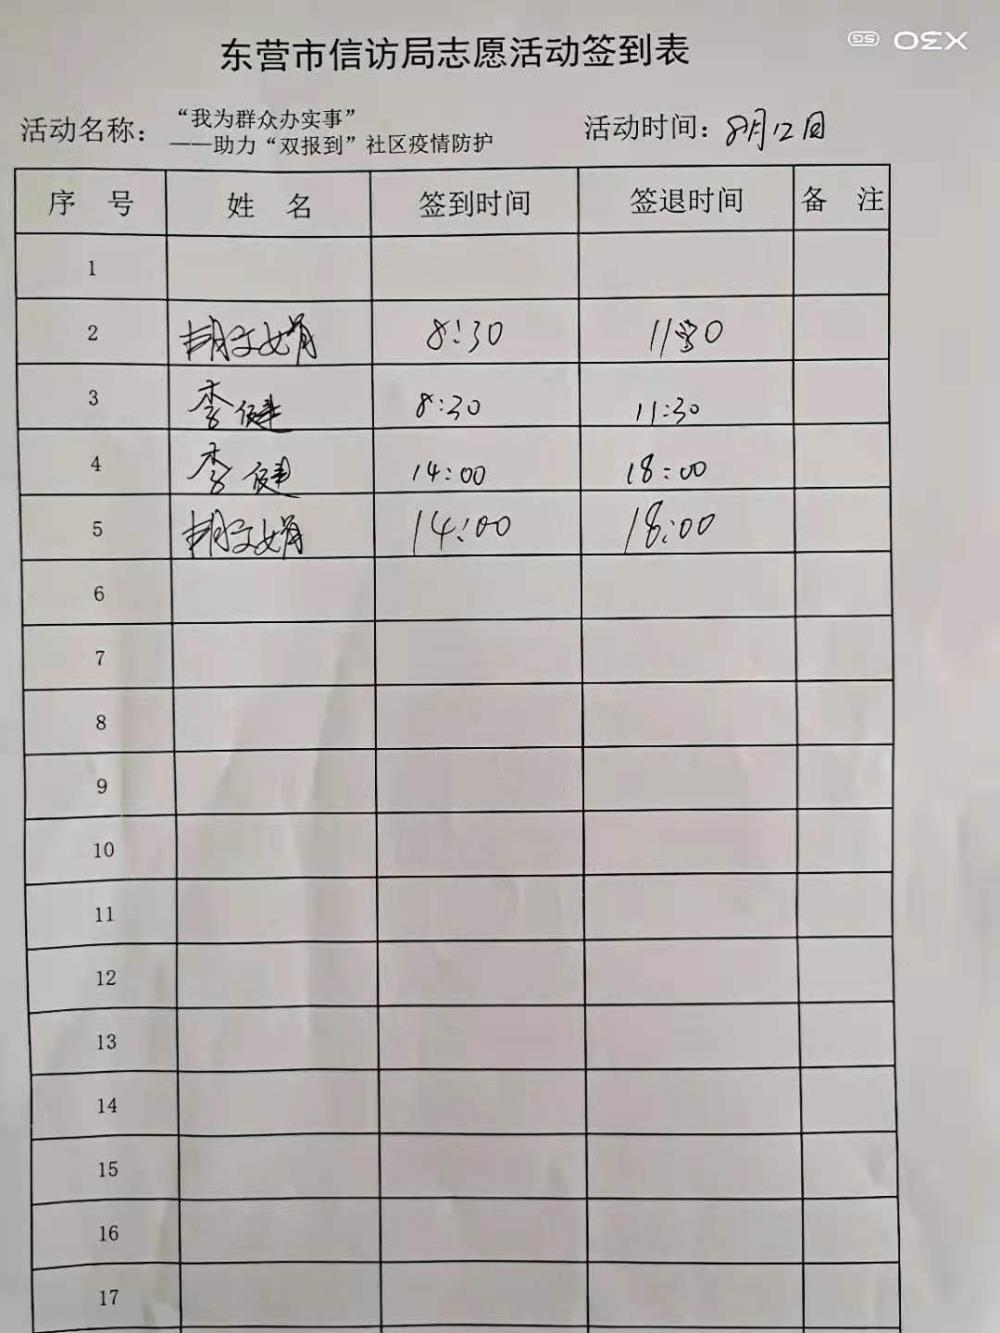 东营市信访局志愿活动签到表
X30 5G
活动名称： “我为群众办实事”
——助力“双报到”社区疫情防护
活动时间：8月12日
序 号 姓 名 签到时间 签退时间 备 注
1
2 胡文娟 8:30 11:30
3 李健 8:30 11:30
4 李健 14:00 18:00
5 胡文娟 14:00 18:00
6
7
8
9
10
11
12
13
14
15
16
17